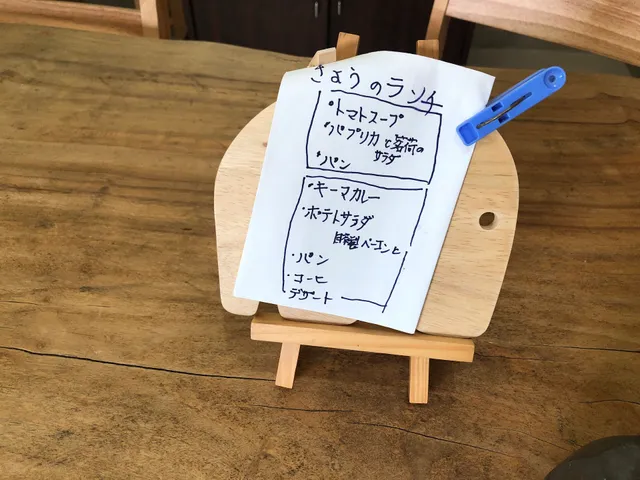 きょうのランチ
・トマトスープ
・パプリカと茗荷の
サラダ
・パン
・キーマカレー
・ポテトサラダ
自家製ベーコンと
・パン
・コーヒ
デザート